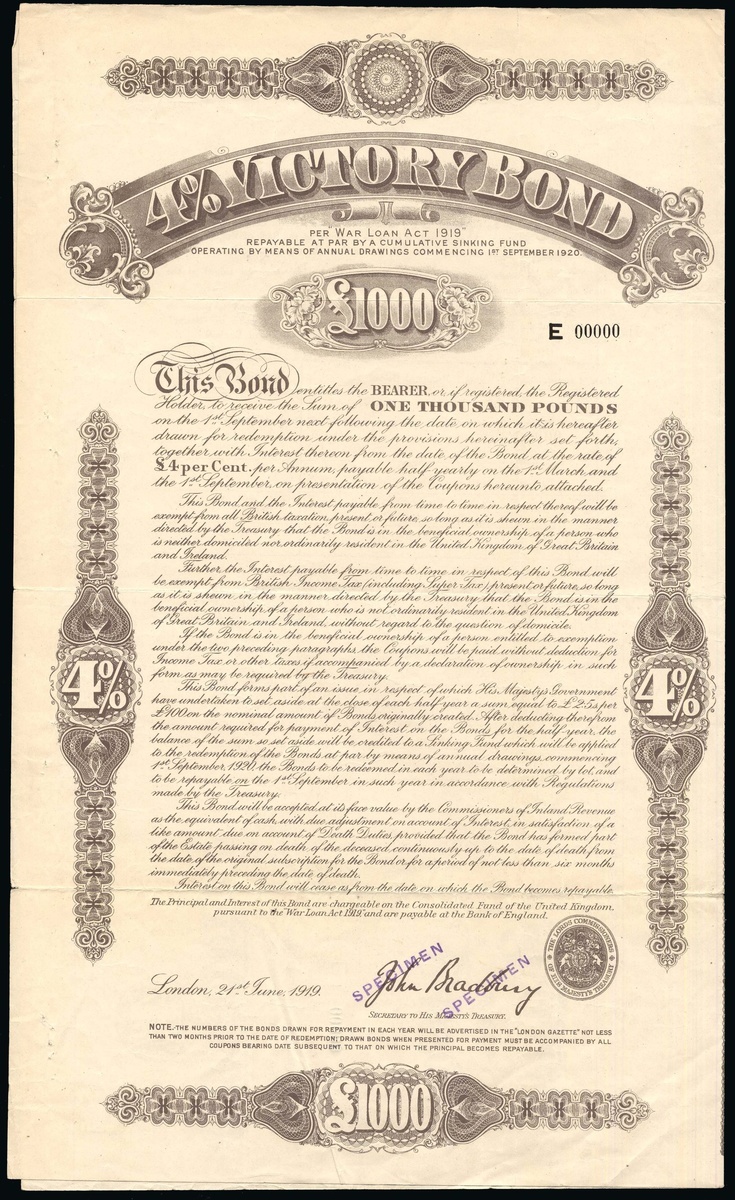 4% VICTORY BOND
PER "WAR LOAN ACT 1919"
REPAYABLE AT PAR BY A CUMULATIVE SINKING FUND
OPERATING BY MEANS OF ANNUAL DRAWINGS COMMENCING 1ST SEPTEMBER 1920.
£1000
E 00000
This Bond entitles the BEARER, or if registered, the Registered
Holder, to receive the Sum of ONE THOUSAND POUNDS
on the 1st September next following the date on which it is hereafter
drawn for redemption under the provisions hereinafter set forth,
together with Interest thereon from the date of the Bond at the rate of
£4 per Cent. per Annum, payable half yearly on the 1st March and
the 1st September, on presentation of the Coupons hereunto attached.
This Bond and the Interest payable from time to time in respect thereof will be
exempt from all British taxation, present or future, so long as it is shewn in the manner
directed by the Treasury that the Bond is in the beneficial ownership of a person who
is neither domiciled nor ordinarily resident in the United Kingdom of Great Britain
and Ireland.
Further, the Interest payable from time to time in respect of this Bond will
be exempt from British Income Tax (including Super Tax), present or future, so long
as it is shewn in the manner directed by the Treasury that the Bond is in the
beneficial ownership of a person who is not ordinarily resident in the United Kingdom
of Great Britain and Ireland, without regard to the question of domicile.
If the Bond is in the beneficial ownership of a person entitled to exemption
under the two preceding paragraphs, the Coupons will be paid without deduction for
Income Tax or other taxes if accompanied by a declaration of ownership in such
form as may be required by the Treasury.
This Bond forms part of an issue in respect of which His Majesty's Government
have undertaken to set aside at the close of each half year a sum equal to £2:5s per
£100 on the nominal amount of Bonds originally created. After deducting therefrom
the amount required for payment of Interest on the Bonds for the half-year, the
balance of the sum so set aside will be credited to a Sinking Fund which will be applied
to the redemption of the Bonds at par by means of annual drawings, commencing
1st September, 1920, the Bonds to be redeemed in each year to be determined by lot, and
to be repayable on the 1st September in such year in accordance with Regulations
made by the Treasury.
This Bond will be accepted at its face value by the Commissioners of Inland Revenue
as the equivalent of cash, with due adjustment on account of Interest, in satisfaction of a
like amount due on account of Death Duties, provided that the Bond has formed part
of the Estate passing on death of the deceased continuously up to the date of death from
the date of the original subscription for the Bond or for a period of not less than six months
immediately preceding the date of death.
Interest on this Bond will cease as from the date on which the Bond becomes repayable.
4%
4%
The Principal and Interest of this Bond are chargeable on the Consolidated Fund of the United Kingdom,
pursuant to the "War Loan Act, 1919," and are payable at the Bank of England.
THE LORDS COMMISSIONERS OF HIS MAJESTY'S TREASURY
London, 21st June, 1919.
John Bradbury
SPECIMEN
SPECIMEN
SECRETARY TO HIS MAJESTY'S TREASURY.
NOTE.-THE NUMBERS OF THE BONDS DRAWN FOR REPAYMENT IN EACH YEAR WILL BE ADVERTISED IN THE "LONDON GAZETTE" NOT LESS
THAN TWO MONTHS PRIOR TO THE DATE OF REDEMPTION; DRAWN BONDS WHEN PRESENTED FOR PAYMENT MUST BE ACCOMPANIED BY ALL
COUPONS BEARING DATE SUBSEQUENT TO THAT ON WHICH THE PRINCIPAL BECOMES REPAYABLE.
£1000